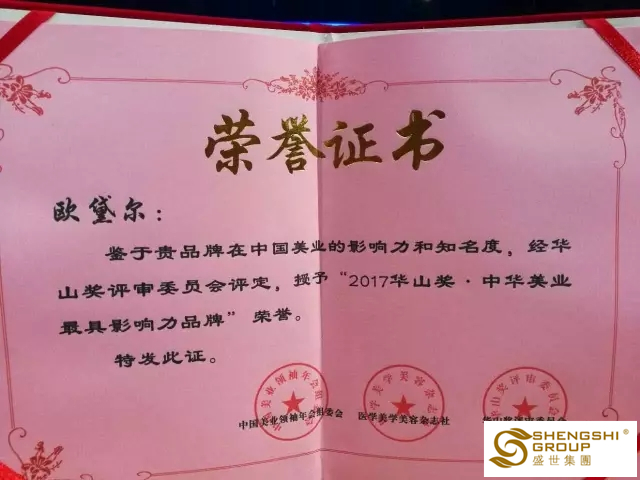 荣誉证书
欧黛尔：
鉴于贵品牌在中国美业的影响力和知名度，经华
山奖评审委员会评定，授予“2017华山奖·中华美业
最具影响力品牌”荣誉。
特发此证。
中国美业领袖年会组委会
医学美学美容杂志社
华山奖评审委员会
SHENGSHI
GROUP
盛世集團